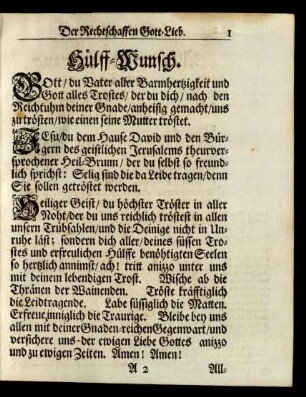 Der Rechtschaffen Gott-Lieb. 1
Hülff-Wunsch.
GOtt / du Vater aller Barmhertzigkeit und
Gott alles Trostes / der du dich / nach den
Reichtuhm deiner Gnade / anheisig gemacht / uns
zu trösten / wie einen seine Mutter tröstet.
JEsu / du dem Hause David und den Bür-
gern des geistlichen Jerusalems theurver-
sprochener Heil-Brunn / der du selbst so freund-
lich sprichst: Selig sind die da Leide tragen / denn
Sie sollen getröstet werden.
Heiliger Geist / du höchster Tröster in aller
Noht / der du uns reichlich tröstest in allen
unsern Trübsahlen / und die Deinige nicht in Un-
ruhe läst; sondern dich aller / deines süssen Tro-
stes und erfreulichen Hülffe benöhtigten Seelen
so hertzlich annimst / ach! tritt anitzo unter uns
mit deinem lebendigen Trost. Wische ab die
Thränen der Wainenden. Tröste kräfftiglich
die Leidtragende. Labe süssiglich die Matten.
Erfreue inniglich die Traurige. Bleibe bey uns
allen mit deiner Gnaden-reichen Gegenwart / und
versichere uns der ewigen Liebe Gottes anizzo
und zu ewigen Zeiten. Amen! Amen!
A 2 All-